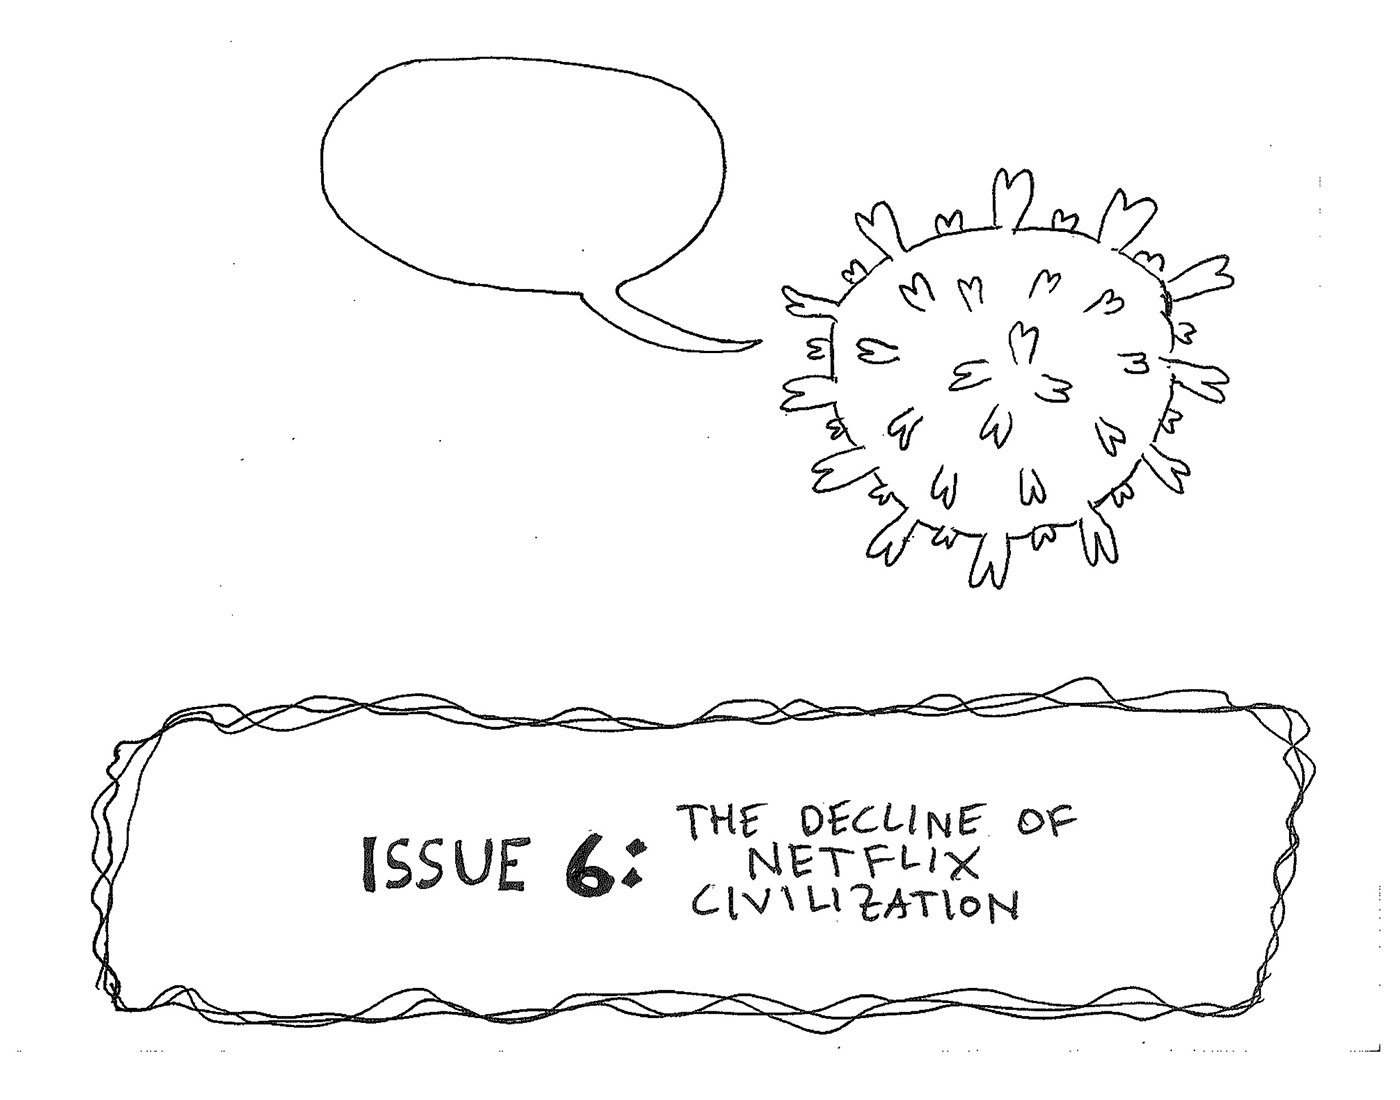 ISSUE 6:
THE DECLINE OF
NETFLIX
CIVILIZATION